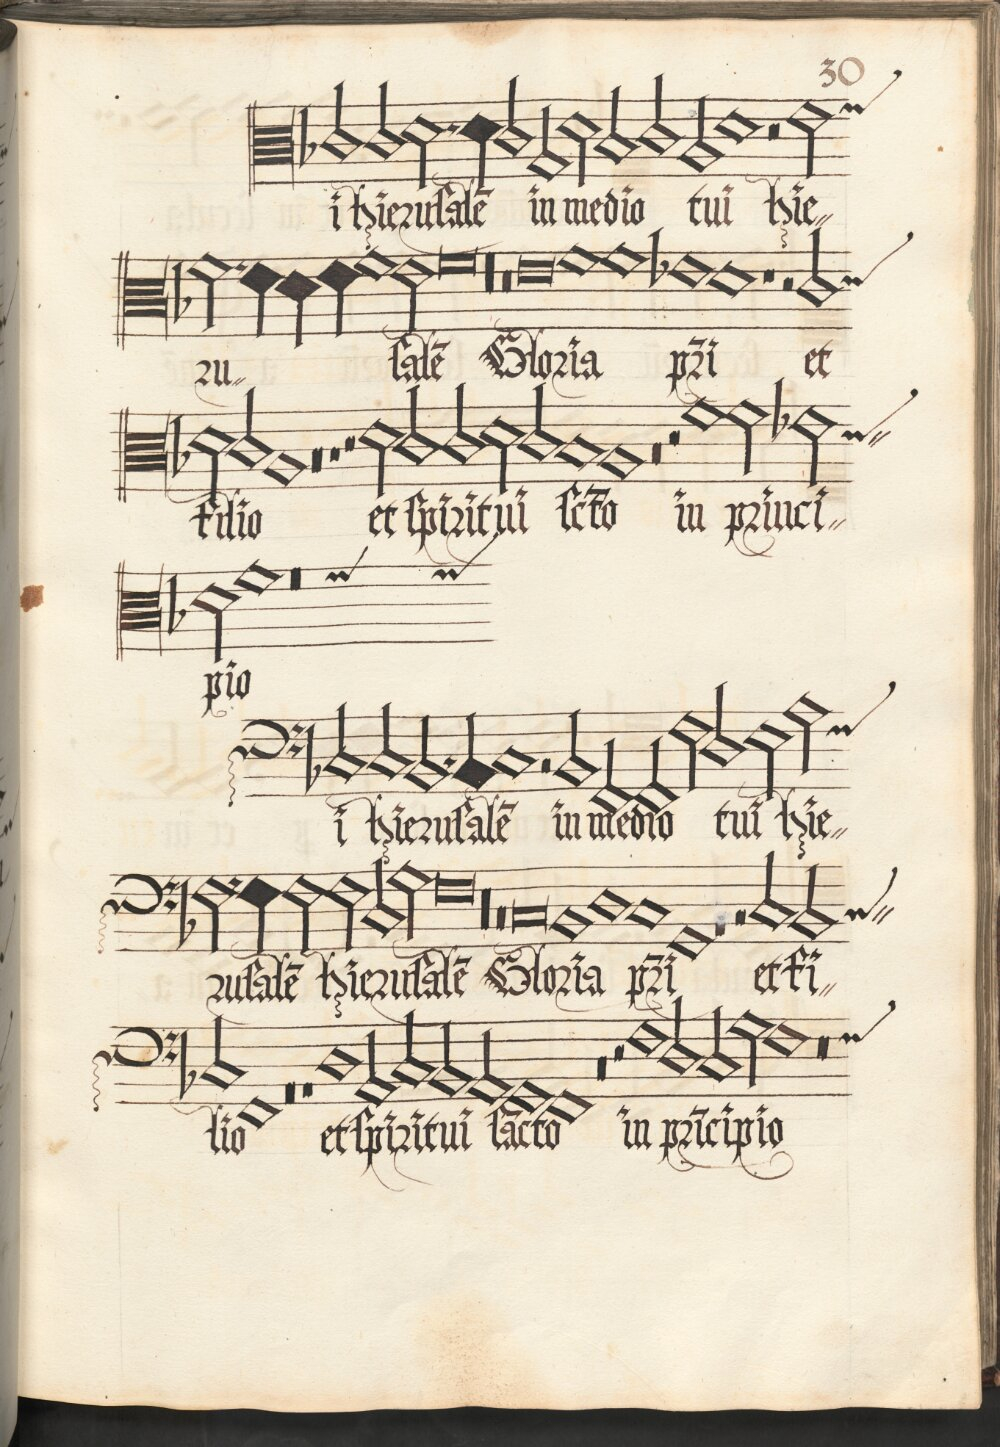 30
i hierusalē in medio tui hie„
ru„ salē Gloria pr̄i et
filio et spiritui sc̄to in princi„
pio
i hierusalē in medio tui hie„
rusalē hierusalē Gloria pr̄i et fi„
lio et spiritui sācto in prīcipio